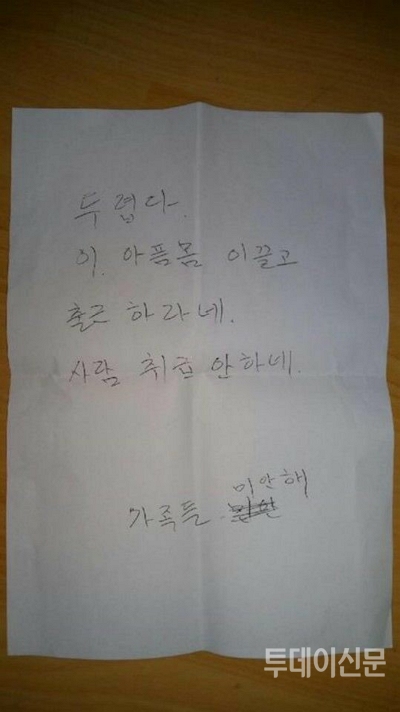 두렵다.
이. 아픔몸 이끌고
출근 하라네.
사람 취급 안하네.
미안해
가족들
투데이신문